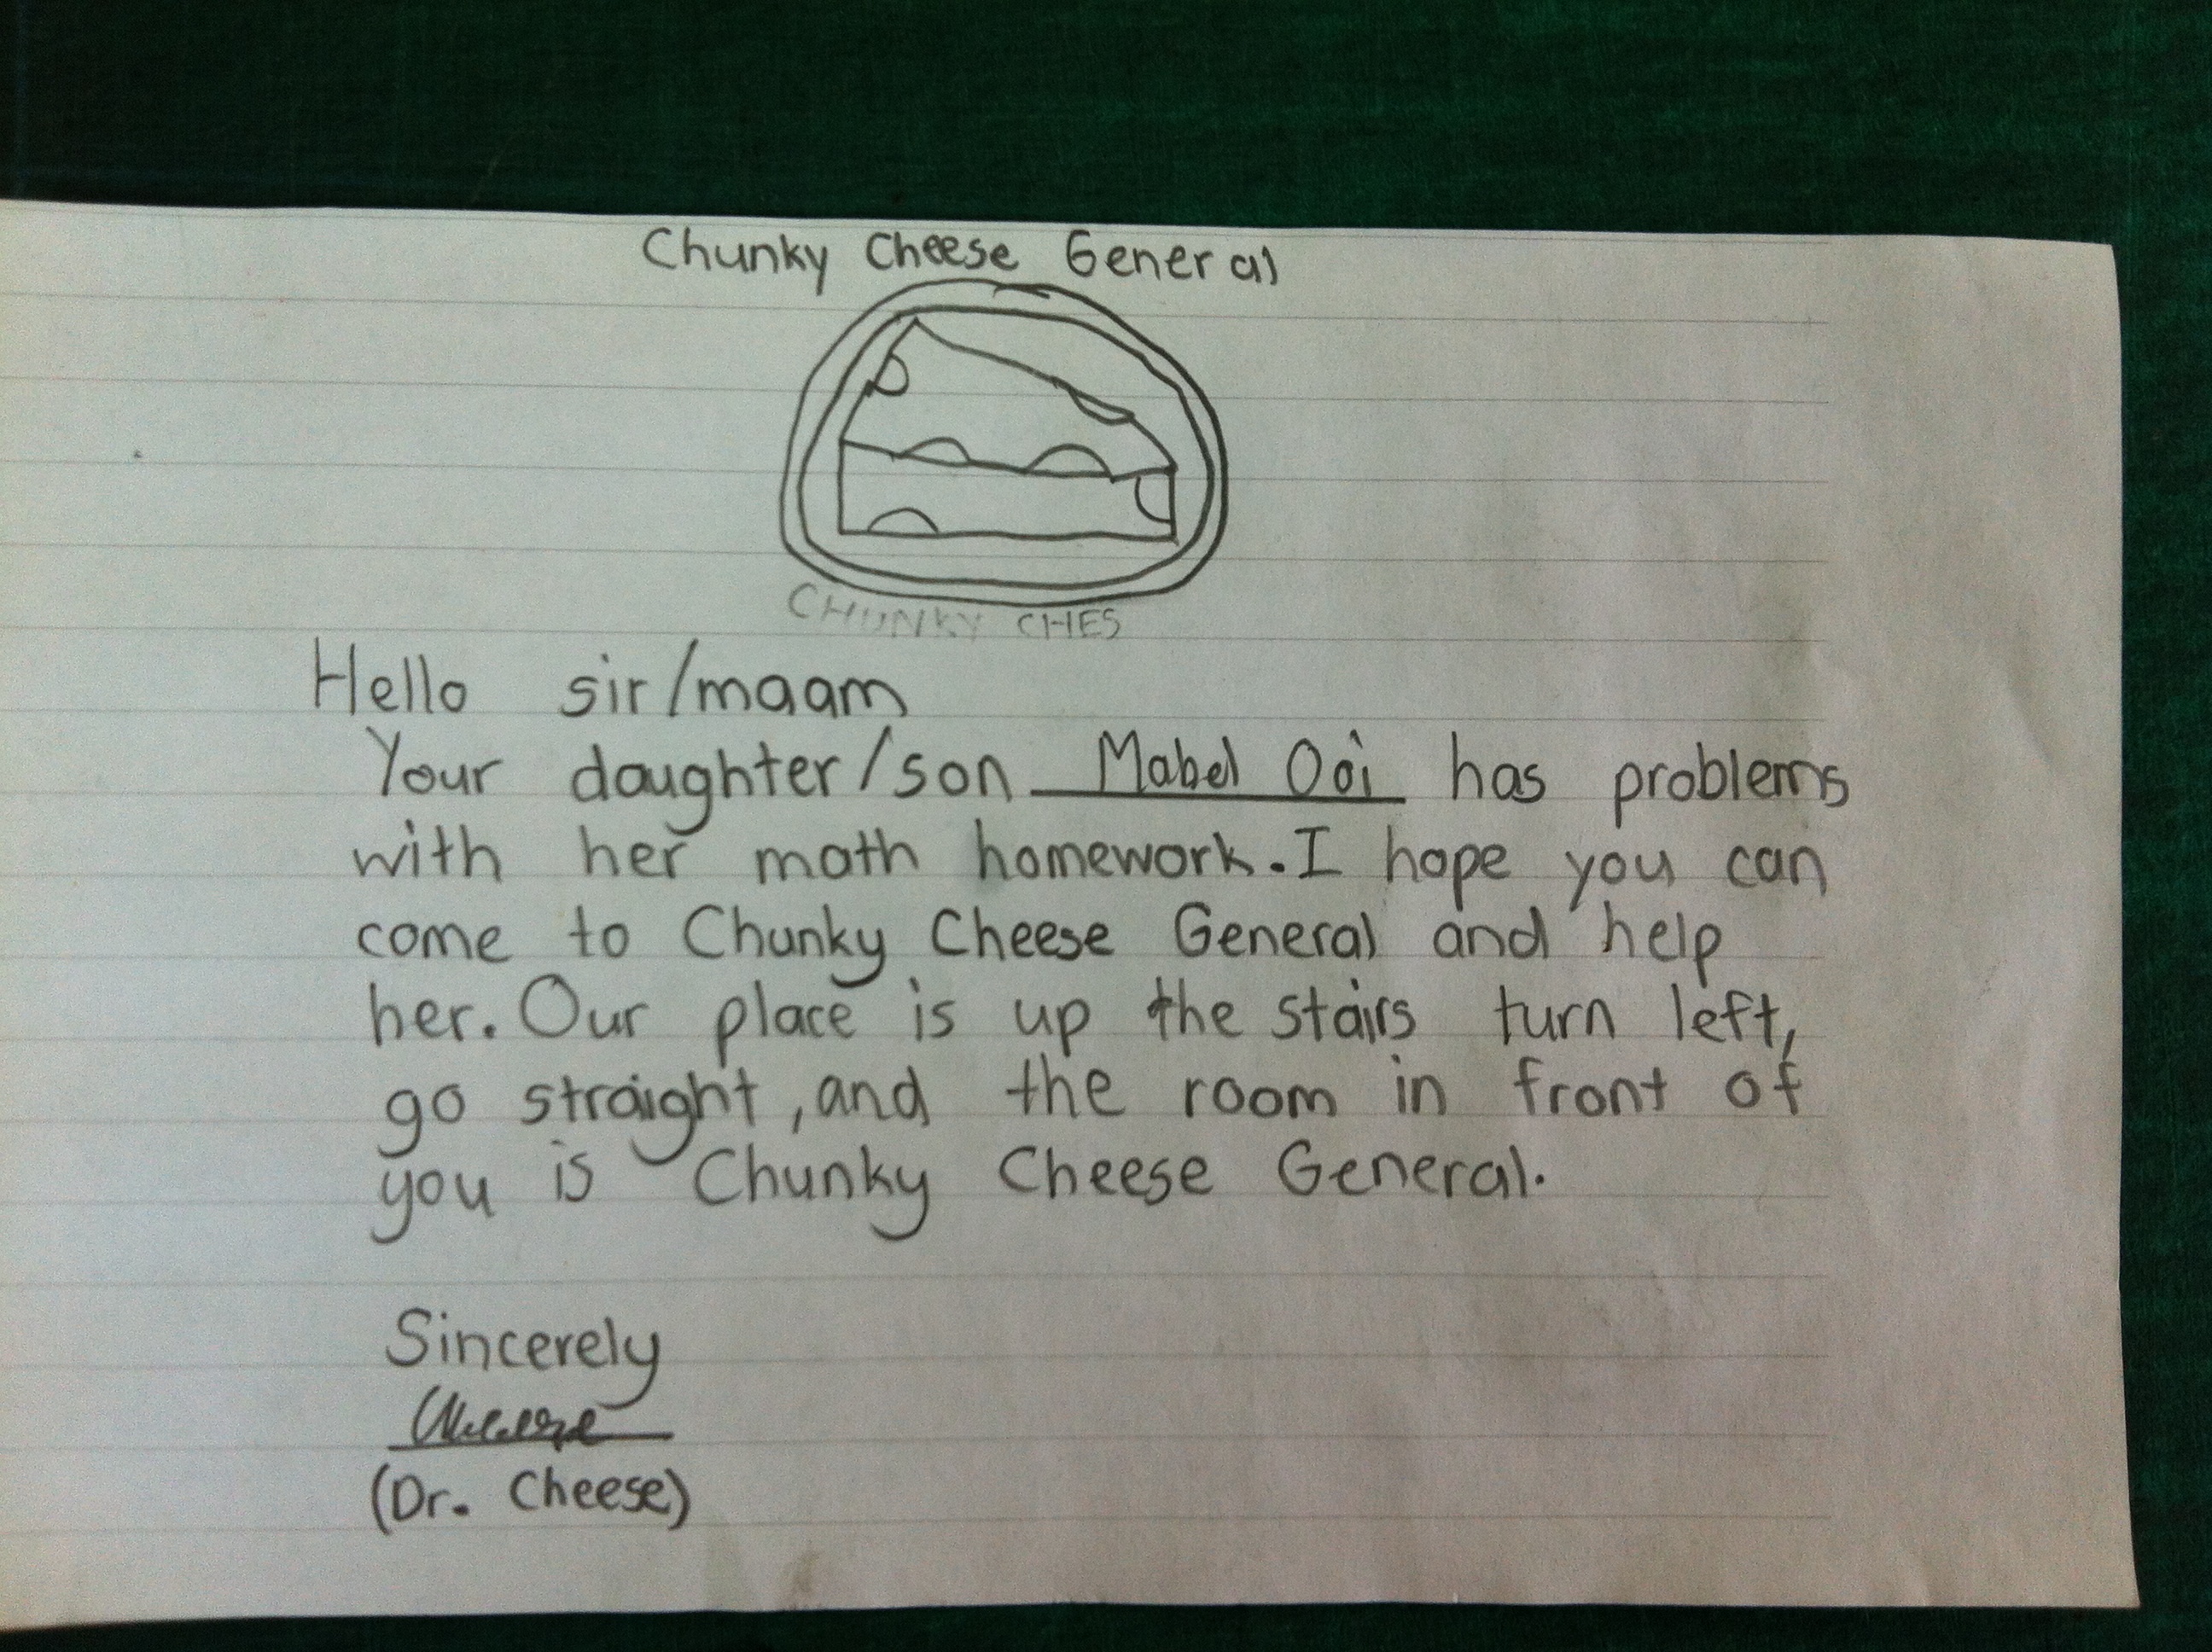 Chunky Cheese General
CHUNKY CHES
Hello sir/maam
Your daughter/son Mabel Ooi has problems
with her math homework. I hope you can
come to Chunky Cheese General and help
her. Our place is up the stairs turn left,
go straight, and the room in front of
you is Chunky Cheese General.
Sincerely
Cheese
(Dr. Cheese)